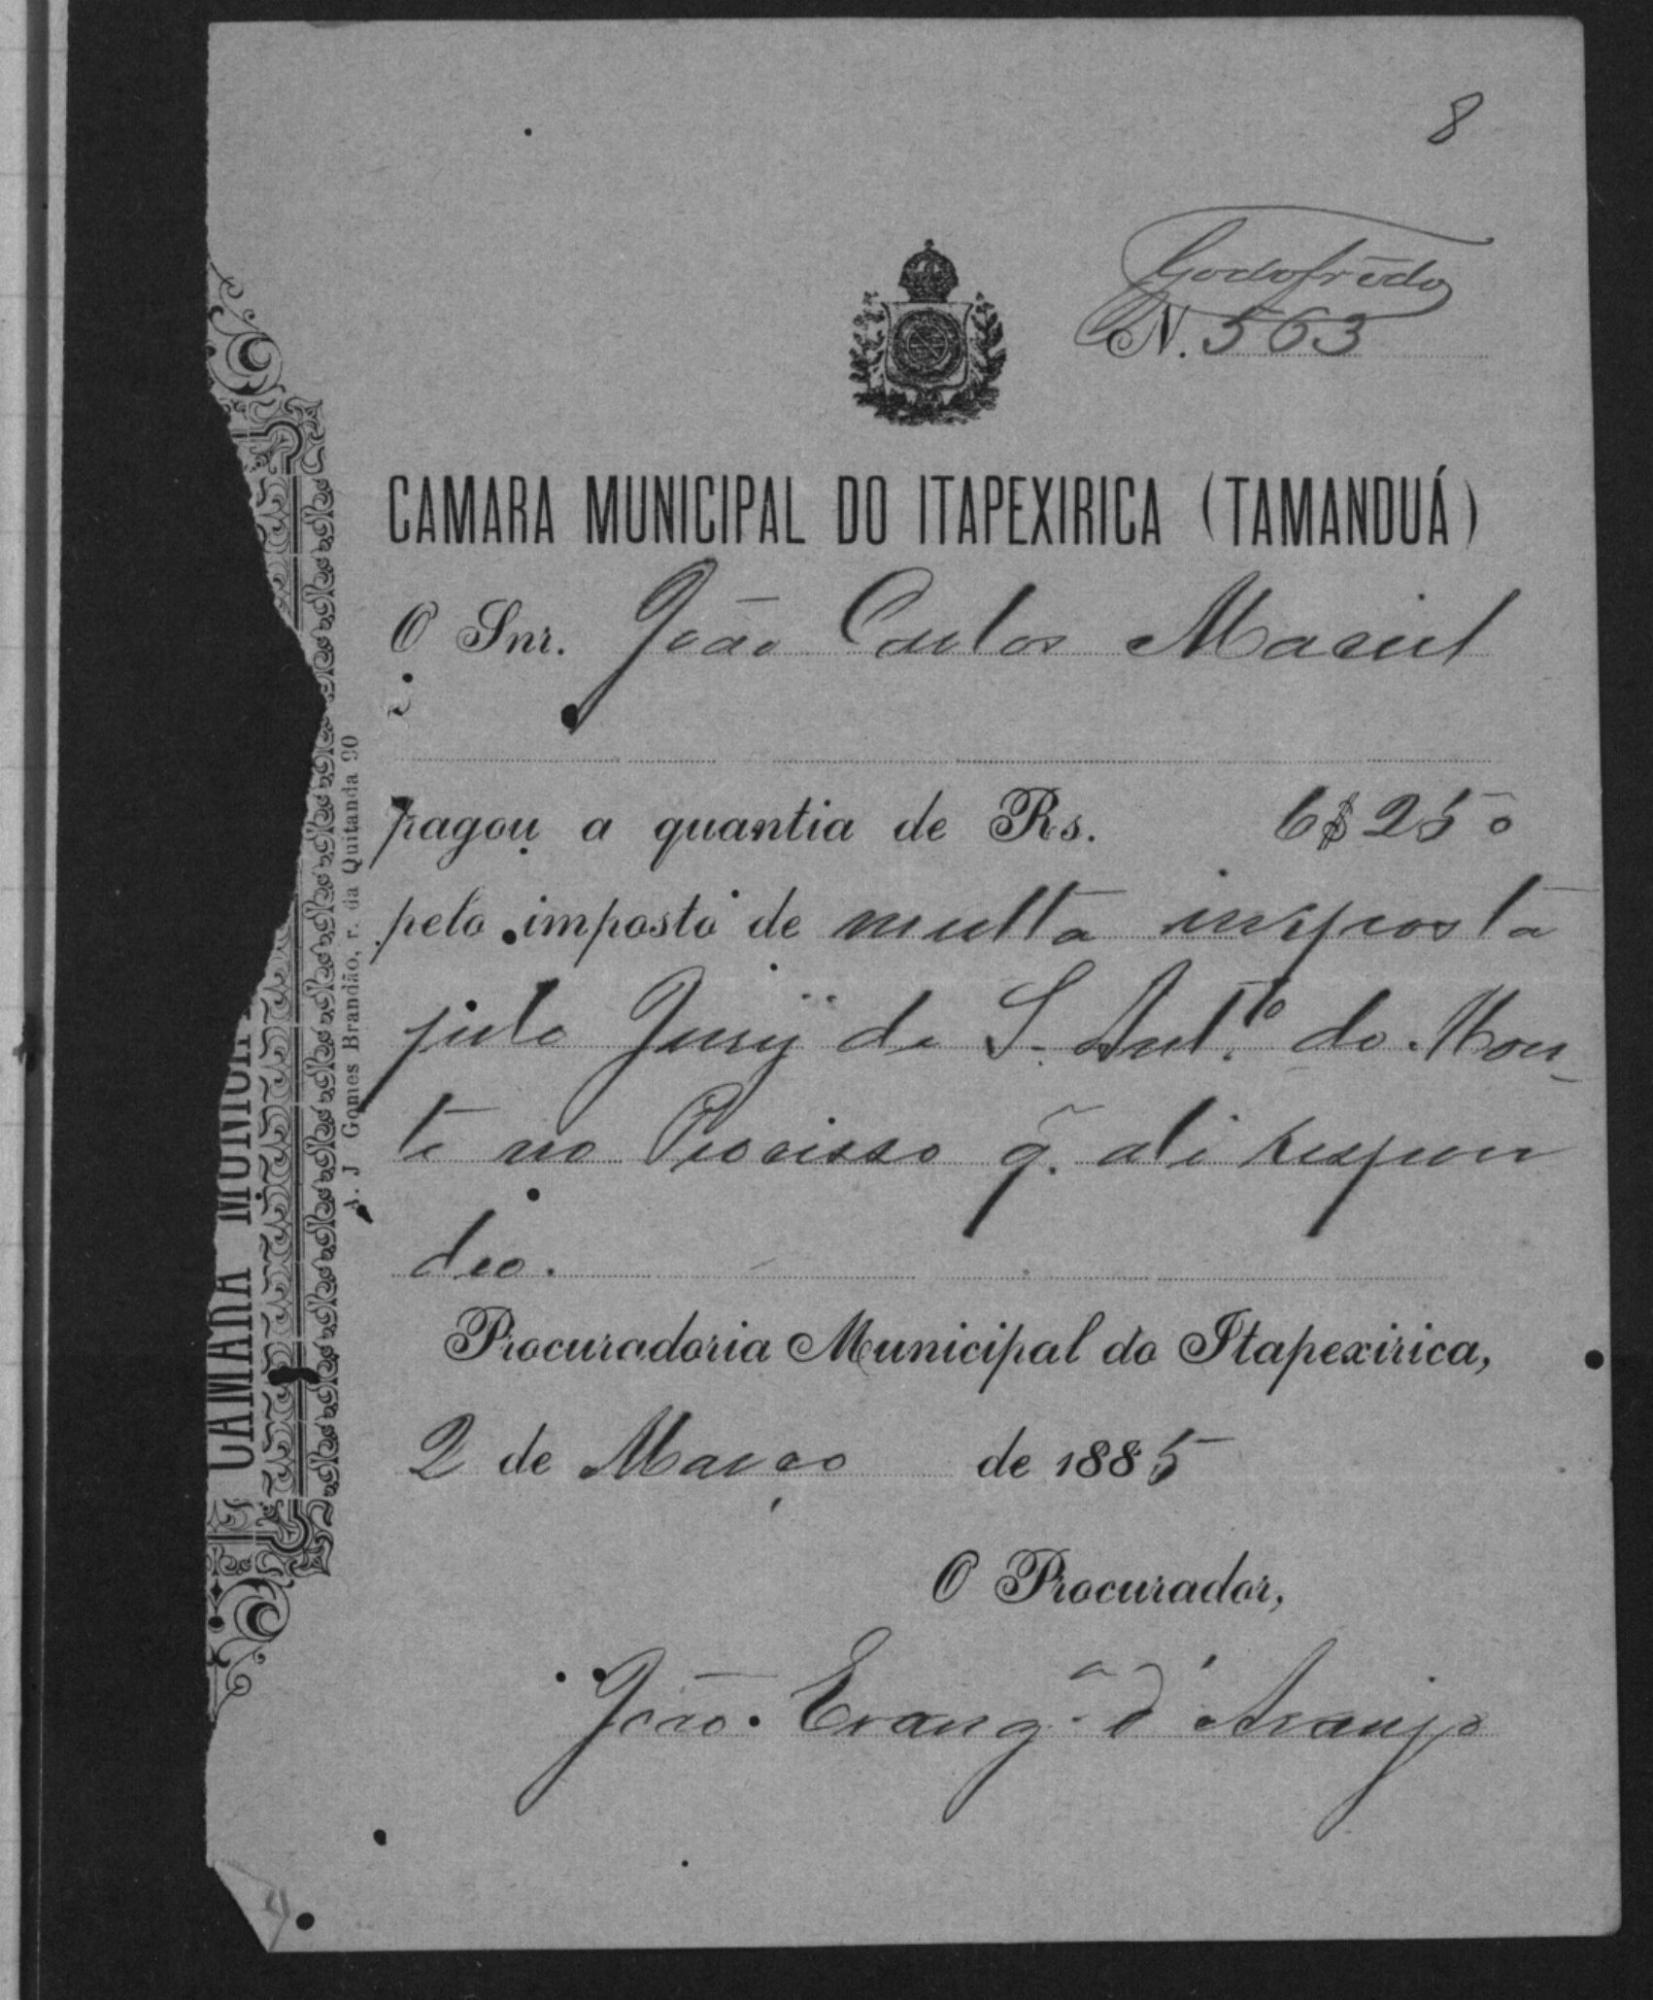 8
Godofrêdo
N. 563
CAMARA MUNICIPAL DO ITAPEXIRICA (TAMANDUÁ)
O Snr. João Carlos Maciel
pagou a quantia de Rs. 6$250
pelo imposto de multa imposta
pelo Jury de S. Antº. do Mon-
te no Processo q̃. ali respon
deo.
Procuradoria Municipal do Itapexirica,
2 de Março de 1885
O Procurador,
João Evangª. d'Araujo
A. J Gomes Brandão, r. da Quitanda 90
CAMARA MUNICIP